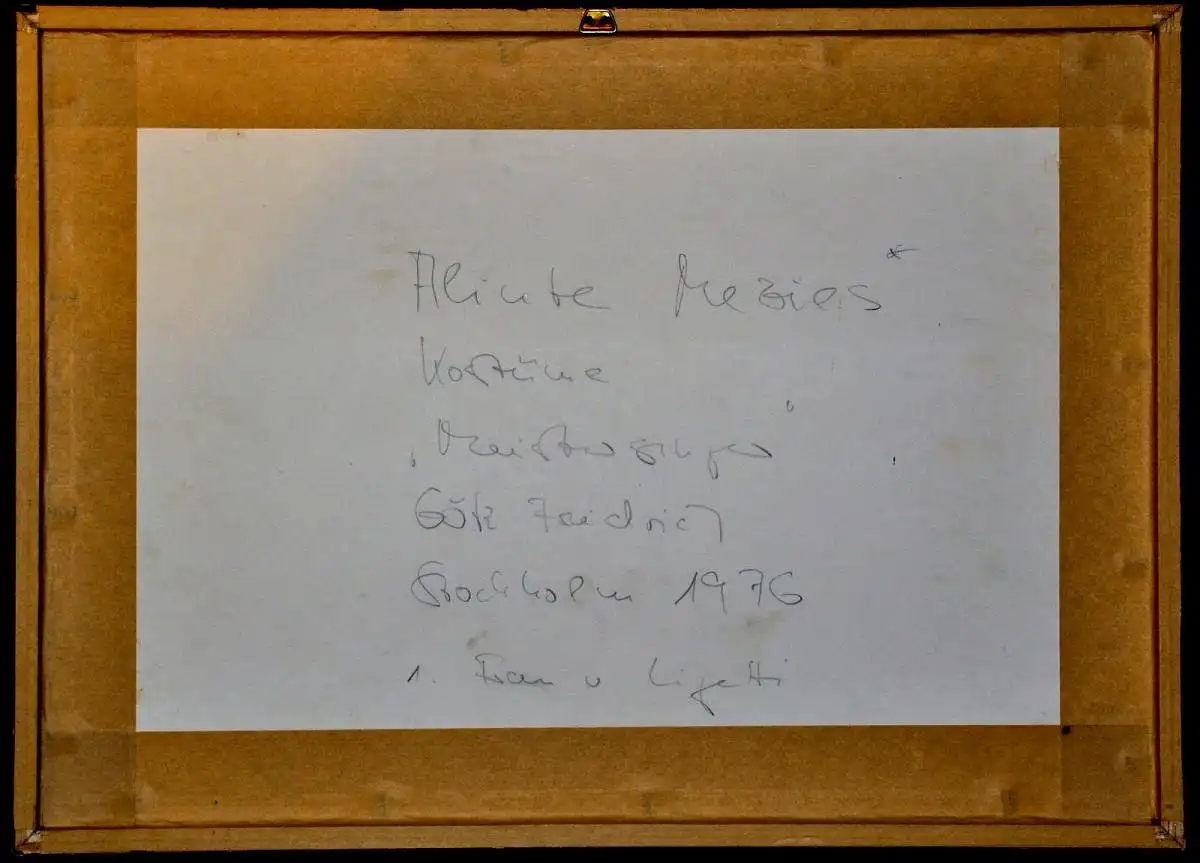 Alinte Mezies *
Kostüme
„Meistersinger“
Götz Friedrich
Stockholm 1976
1. Frau v Ligetti